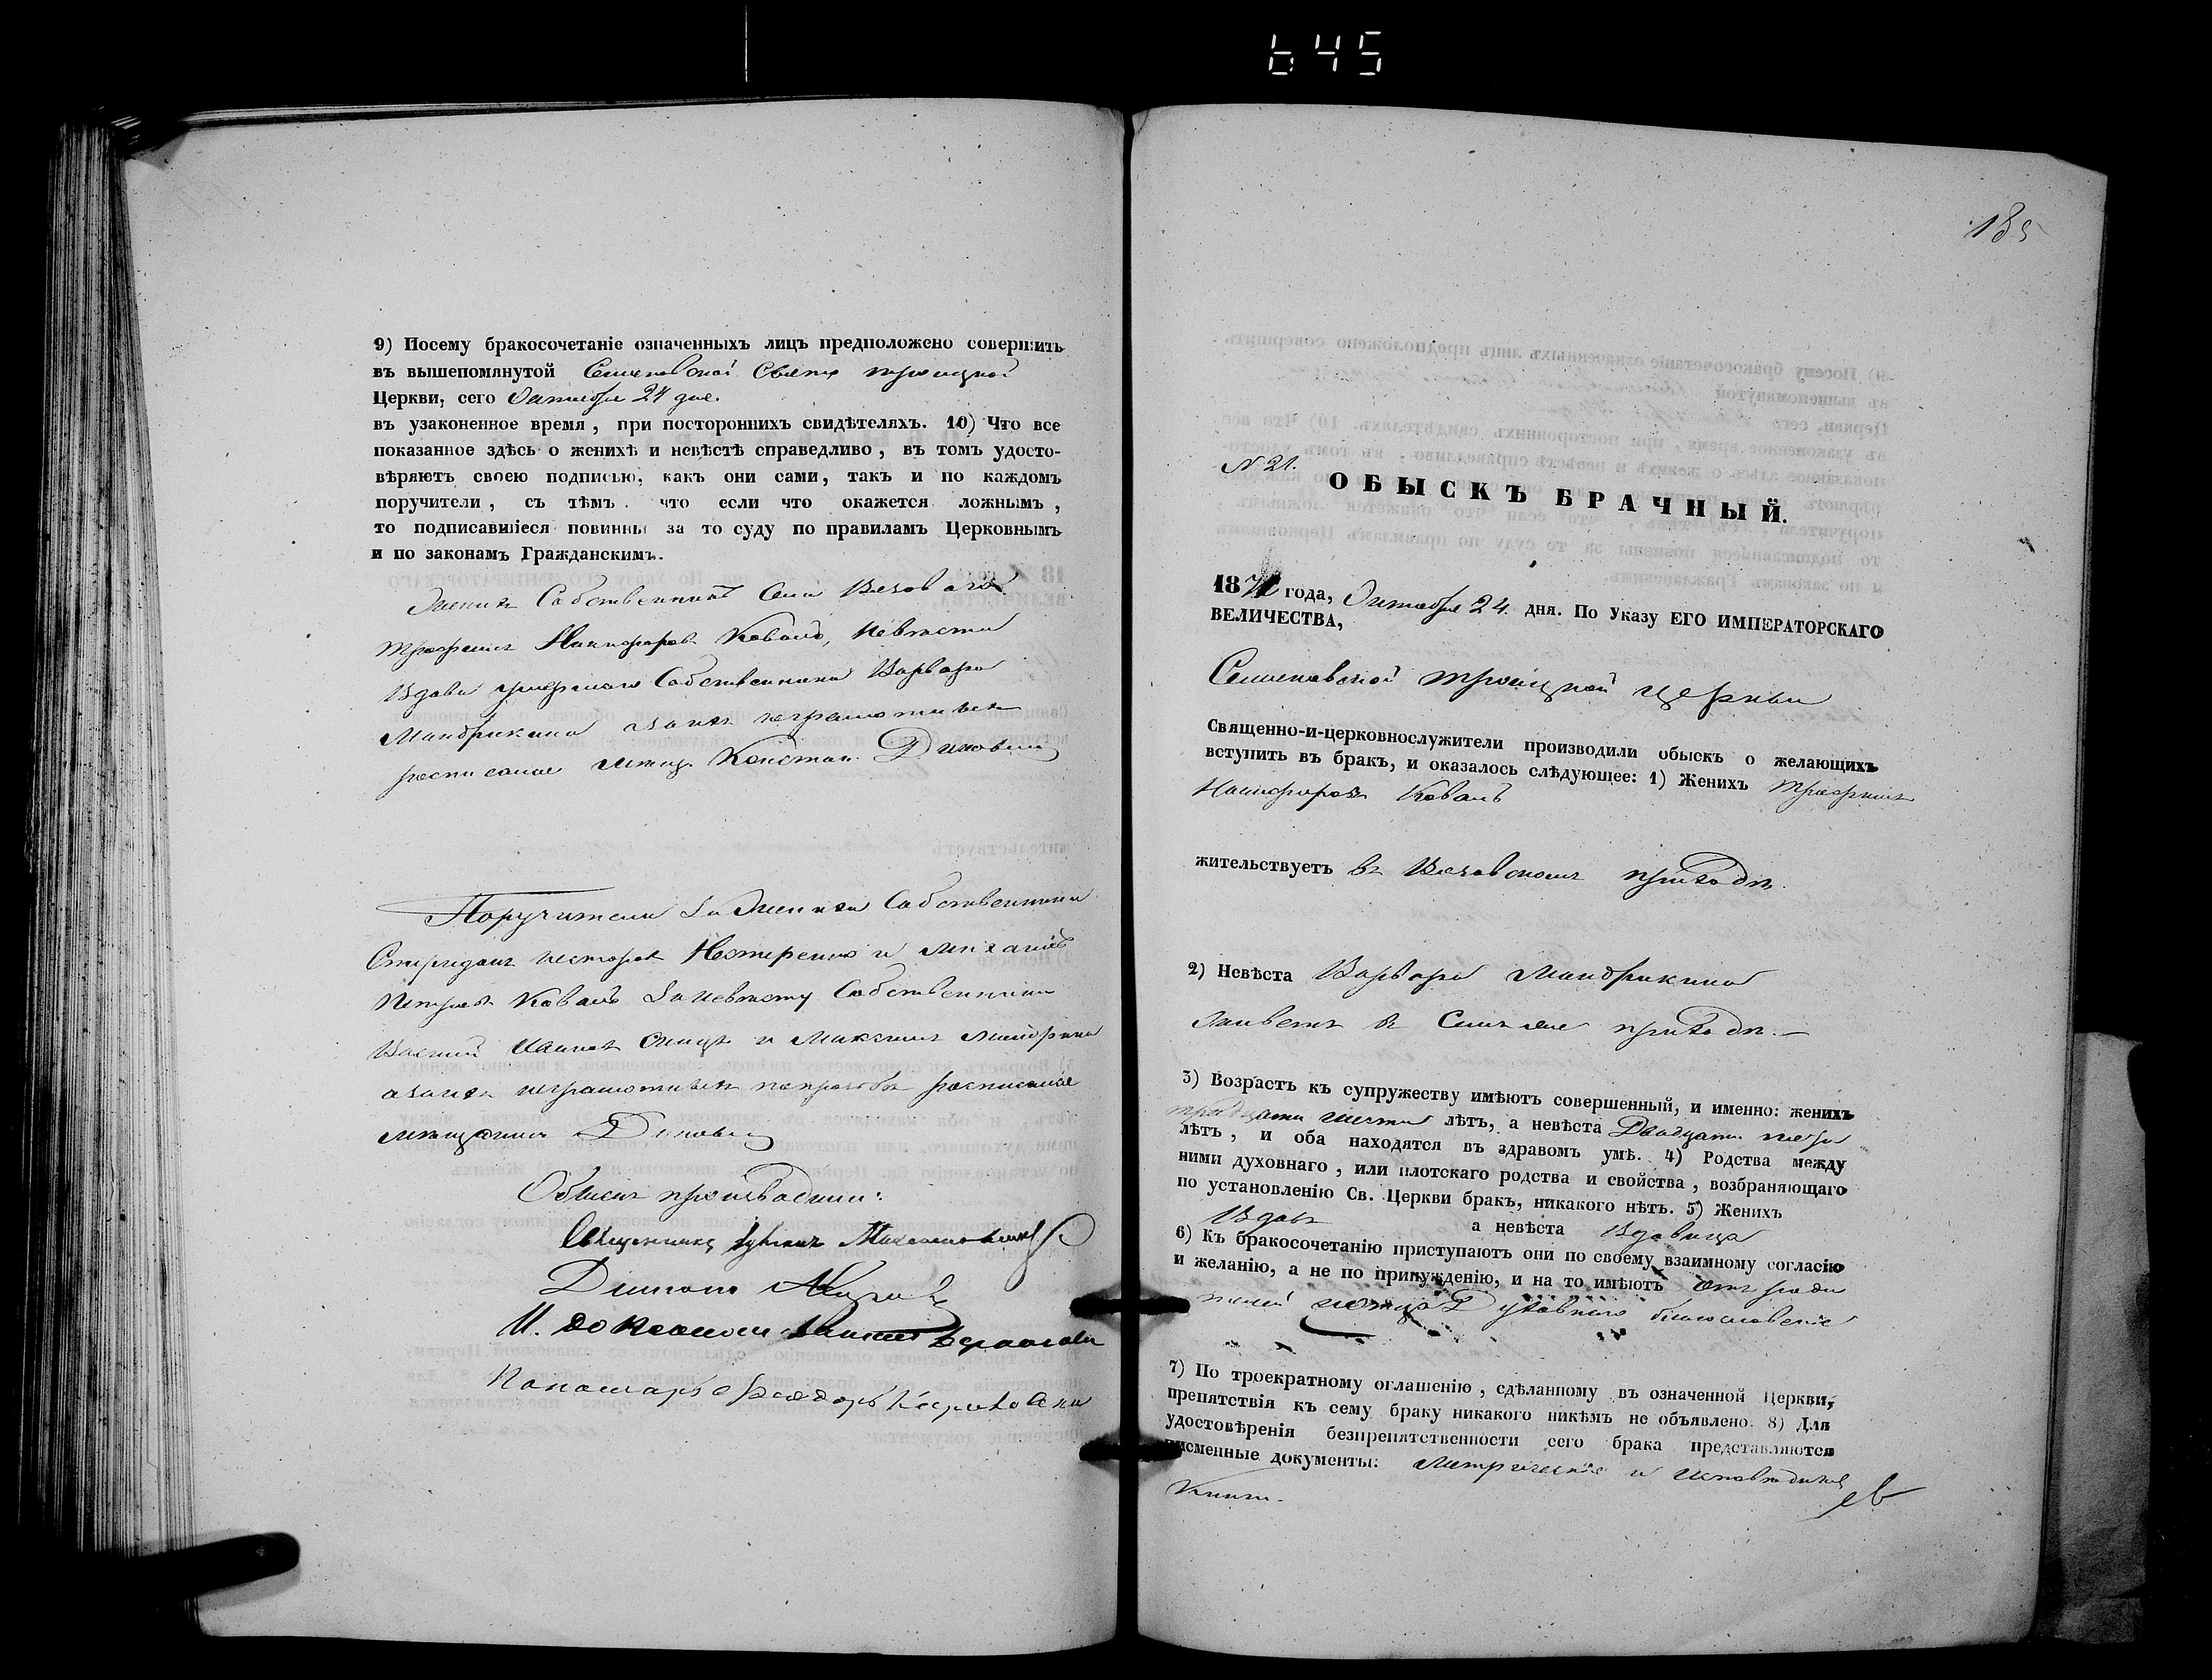 645
9) Посему бракосочетаніе означенныхъ лицъ предположено совершить
въ вышепомянутой Семеновской Свято Троицкой
Церкви, сего Октября 24 дня.
въ узаконенное время, при постороннихъ свидѣтеляхъ. 10) Что все
показанное здѣсь о женихѣ и невѣстѣ справедливо, въ томъ удосто-
вѣряютъ своею подписью, какъ они сами, такъ и по каждомъ
поручители, съ тѣмъ что если что окажется ложнымъ,
то подписавшіеся повинны за то суду по правиламъ Церковнымъ
и по законамъ Гражданскимъ.
Женихъ Собственникъ Села
Трофимъ Никифоровъ Коваль, Невѣста
Вдова умершаго Собственника Варвара
Мандрикина а за нихъ неграмотныхъ
росписался мѣщ. Констан.
Поручители За Жениха Собственники
Спиридонъ Несторовъ Нестеренко и Михаилъ
Петровъ Коваль За невѣсту Собственники
Василій и Максимъ
а за нихъ неграмотныхъ по просьбѣ росписался
мѣщанинъ
Обыскъ производили:
Священникъ
Діаконъ
И. до
Пономарь Ѳеодоръ
185
N 21.
ОБЫСКЪ БРАЧНЫЙ.
187 года, Октября 24 дня. По Указу ЕГО ИМПЕРАТОРСКАГО
ВЕЛИЧЕСТВА,
Семеновской Троицкой церкви
Священно-и-церковнослужители производили обыскъ о желающихъ
вступить въ бракъ, и оказалось слѣдующее: 1) Женихъ Трофимъ
Никифоровъ Коваль
жительствуетъ въ приходѣ.
2) Невѣста Варвара Мандрикина
живетъ въ приходѣ.
3) Возрастъ къ супружеству имѣютъ совершенный, и именно: женихъ
тридцати шести лѣтъ, а невѣста Двадцати
лѣтъ, и оба находятся въ здравомъ умѣ. 4) Родства между
ними духовнаго, или плотскаго родства и свойства, возбраняющаго
по установленію Св. Церкви бракъ, никакого нѣтъ. 5) Женихъ
Вдовъ а невѣста Вдовица
6) Къ бракосочетанію приступаютъ они по своему взаимному согласію
и желанію, а не по принужденію, и на то имѣютъ отъ роди
телей и отца Духовнаго благословеніе
7) По троекратному оглашенію, сдѣланному въ означенной Церкви,
препятствія къ сему браку никакого никѣмъ не объявлено. 8) Для
удостовѣренія безпрепятственности сего брака представляются
письменные документы: Метрическія и Исповѣдныя
Книги.